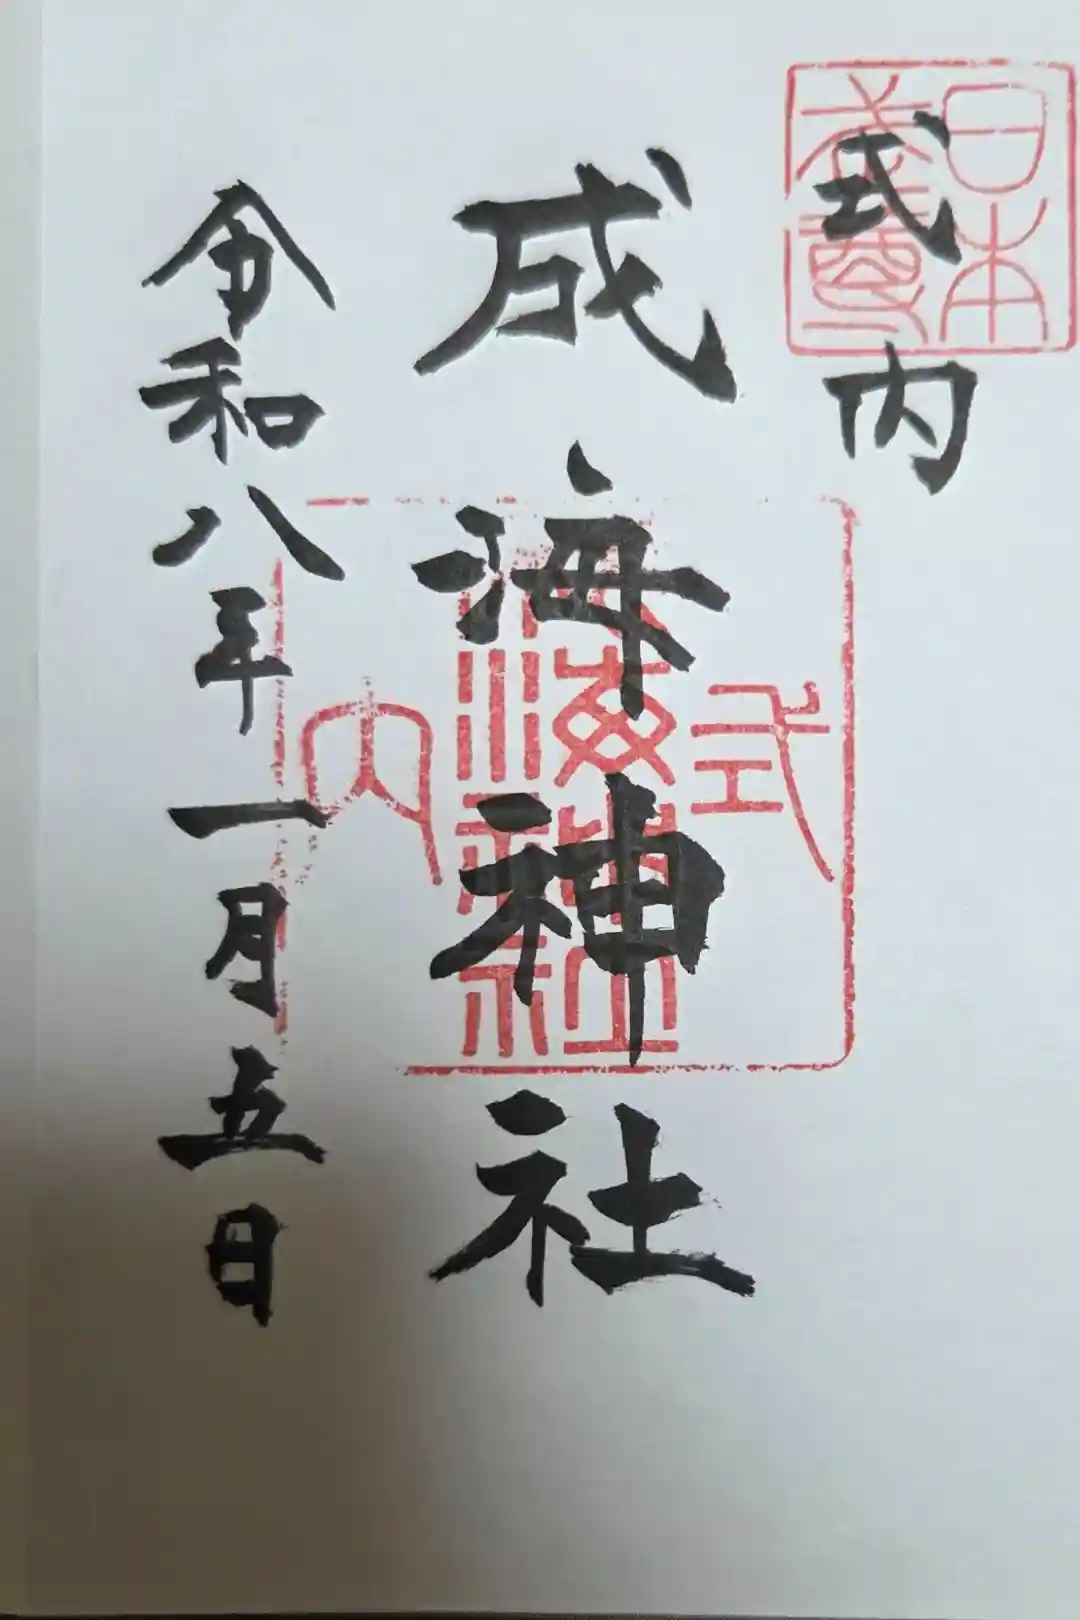 式内
日本
武尊
成海神社
式
海
神社
内
令和八年一月五日